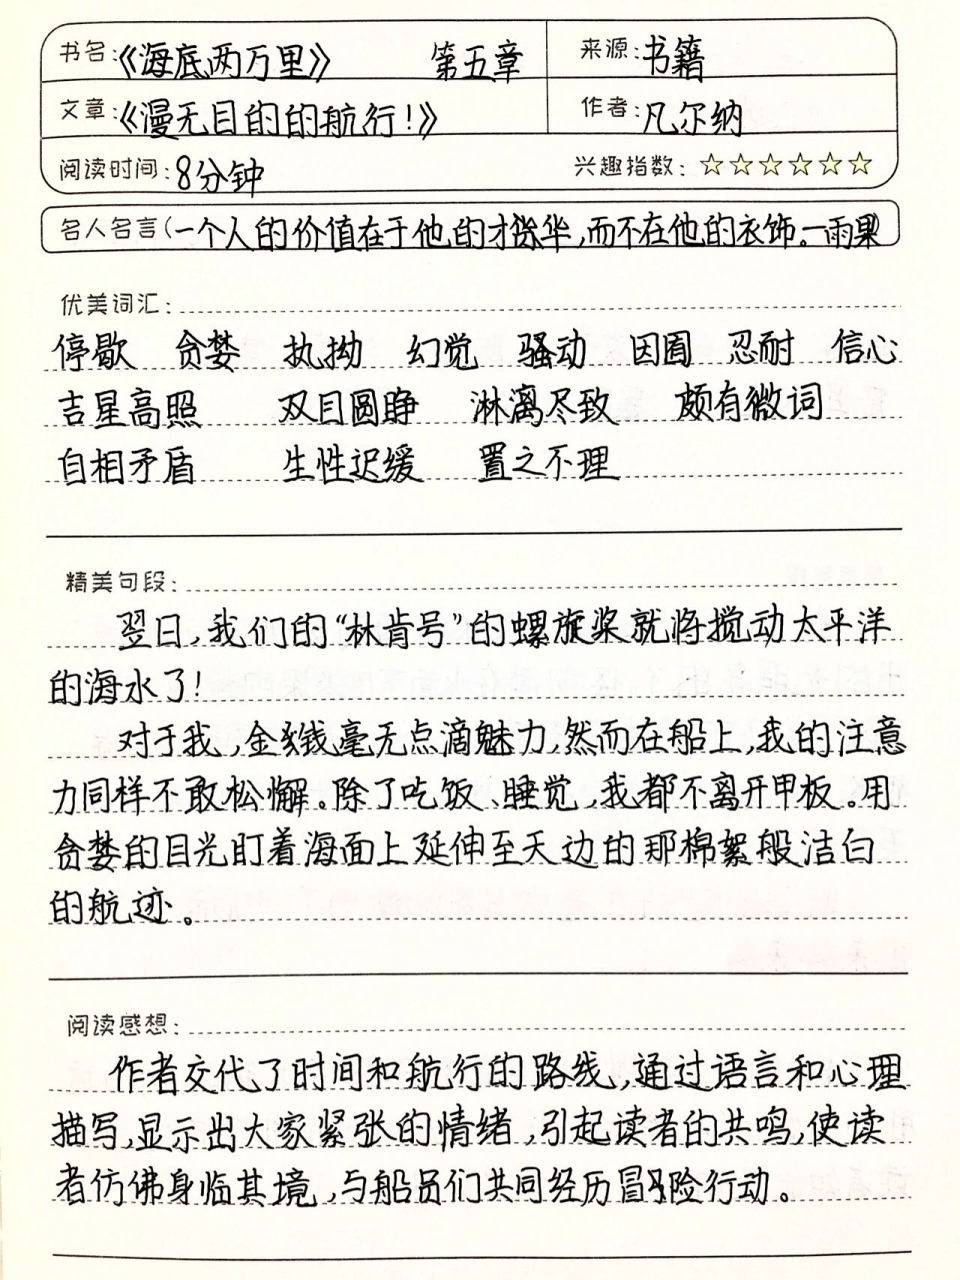 书名:《海底两万里》 第五章 来源:书籍
文章:《漫无目的的航行!》 作者:凡尔纳
阅读时间:8分钟 兴趣指数:☆☆☆☆☆☆
名人名言(一个人的价值在于他的才华,而不在他的衣饰。—雨果)
优美词汇:
停歇 贪婪 执拗 幻觉 骚动 因囿 忍耐 信心
吉星高照 双目圆睁 淋漓尽致 颇有微词
自相矛盾 生性迟缓 置之不理
精美句段:
翌日,我们的“林肯号”的螺旋桨就将搅动太平洋
的海水了!
对于我,金钱毫无点滴魅力,然而在船上,我的注意
力同样不敢松懈。除了吃饭、睡觉,我都不离开甲板。用
贪婪的目光盯着海面上延伸至天边的那棉絮般洁白
的航迹。
阅读感想:
作者交代了时间和航行的路线,通过语言和心理
描写,显示出大家紧张的情绪,引起读者的共鸣,使读
者仿佛身临其境,与船员们共同经历冒险行动。